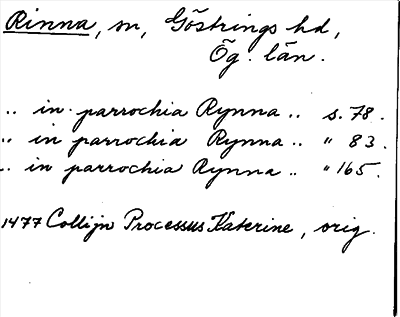 Rinna, sn, Göstrings hd,
Ög. län.
.. in parrochia Rynna .. s. 78.
.. in parrochia Rynna .. " 83.
.. in parrochia Rynna .. " 165.
1477 Collijn Processus Katerine, orig.